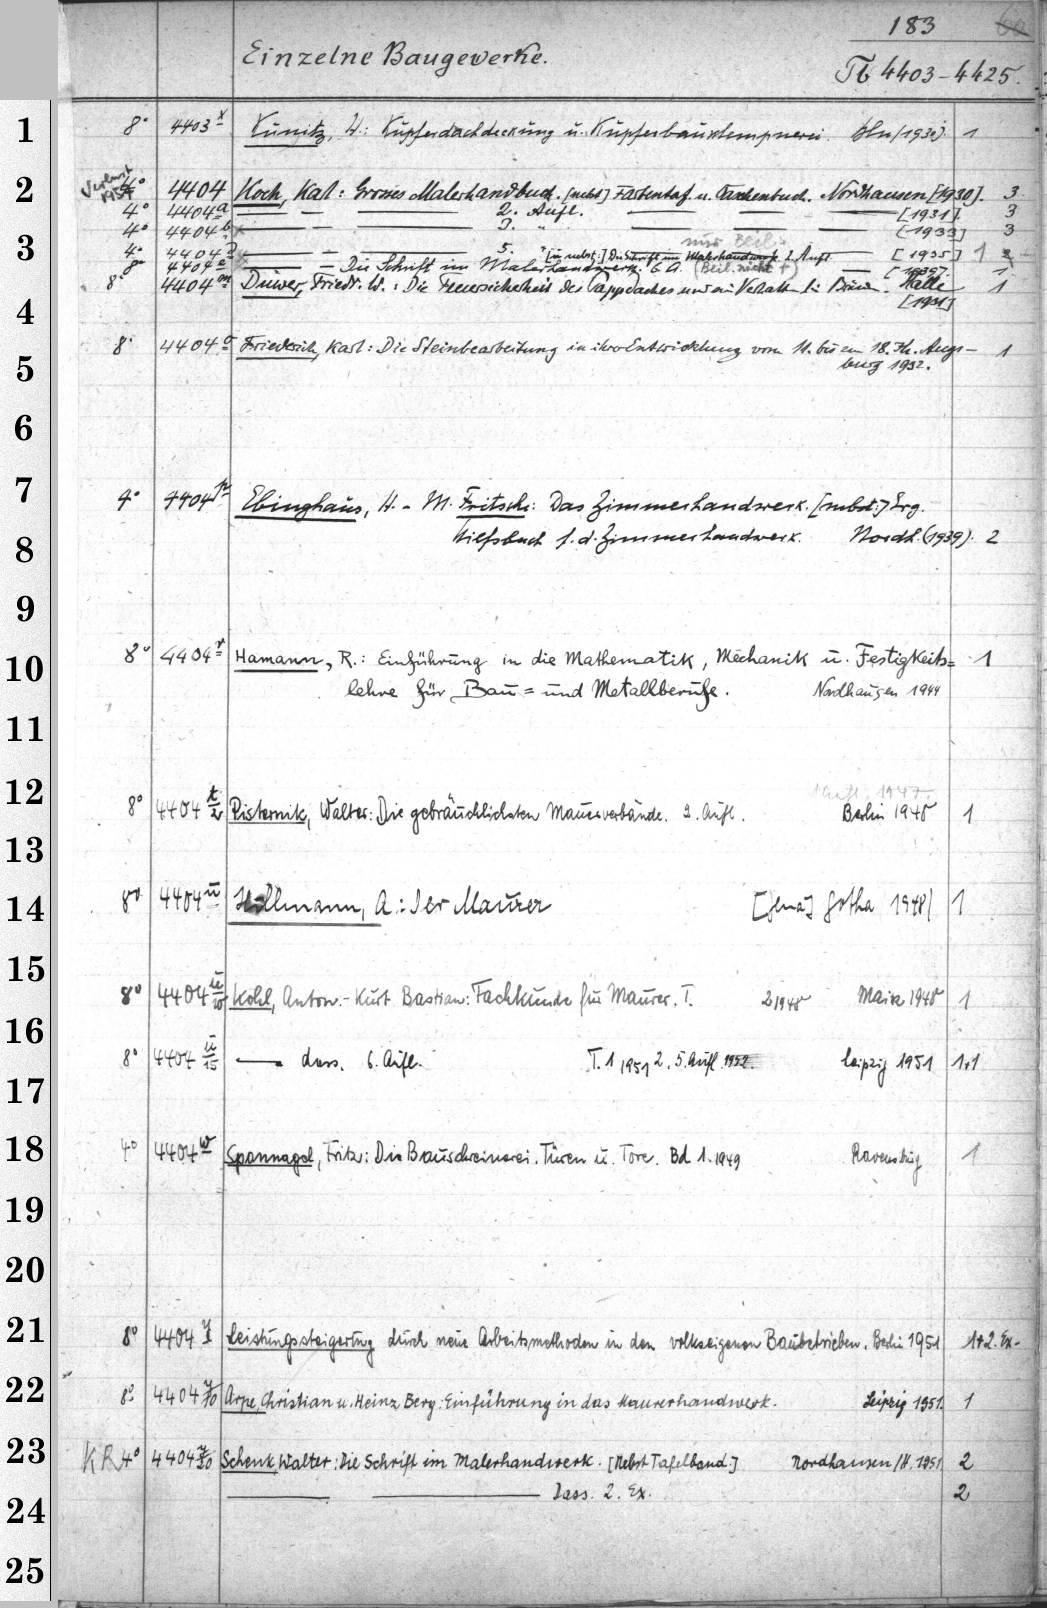 183
Einzelne Baugewerke.
4403-4425.
1
8° 4403 x Kunitz, W.: Kupferdachdeckung u. Kupferbauklempnerei. Bln/1930). 1
2
Verlust 1954
4° 4404 Koch, Karl: Grosses Malerhandbuch. [nebst] Farbentaf. u. Taschenbuch. Nordhausen [1930]. 3
4° 4404 a — — — 2. Aufl. — — — [1931]. 3
4° 4404 b — — — 3. " — — [1933] 3
nur Beil.
3
4° 4404 — — — 5. " [u. nebst:] Die Schrift im Malerhandwerk. 2. Aufl. [1935] 1
8° 4404 e — — Die Schrift im Malerhandwerk. 6. A. (Beil. nicht +) — [1939]. 1
8° 4404 m Düwer, Friedr. W.: Die Feuersicherheit des Pappdaches und sein Verhalten bei Halle 1
[1931]
4
8° 4404 o Friederich, Karl: Die Steinbearbeitung in ihrer Entwicklung vom 11. bis zum 18. Jh. Augs- 1
burg 1932.
5
6
7
4° 4404 p Ebinghaus, H. - M. Fritsche: Das Zimmerhandwerk. [nebst:] Erg.
Hilfsbuch f. d. Zimmerhandwerk. Nordh. (1939). 2
8
9
8° 4404 r Hamann, R.: Einführung in die Mathematik, Mechanik u. Festigkeits= 1
10
lehre für Bau= und Metallberufe. Nordhausen 1944
11
12
1. Aufl. 1947.
8° 4404 t/2 Pisternik, Walter: Die gebräuchlichsten Mauerverbände. 2. Aufl. Berlin 1948 1
13
8° 4404 u Hollmann, A.: Der Maurer [Jena] Gotha 1948/ 1
14
15
8° 4404 u/10 Kohl, Anton.- Kurt Bastian: Fachkunde für Maurer. T. 2 1948 Mainz 1948 1
16
8° 4404 u/15 — dass. 6. Aufl. T. 1 1951 2. 5. Aufl. 1952. Leipzig 1951 1+1
17
18
4° 4404 w Spannagel, Fritz: Die Bauschreinerei. Türen u. Tore. Bd 1. 1949 Ravensburg 1
19
20
21
8° 4404 y/1 Leistungssteigerung durch neue Arbeitsmethoden in den volkseigenen Baubetrieben. Berlin 1951 1+2. Ex.
22
8° 4404 y/10 Arpe, Christian u. Heinz Berg: Einführung in das Maurerhandwerk. Leipzig 1951. 1
23
KR 4° 4404 y/20 Schenk, Walter: Die Schrift im Malerhandwerk. [Nebst Tafelband] Nordhausen/H. 1951 2
— — Dass. 2. Ex. 2
24
25